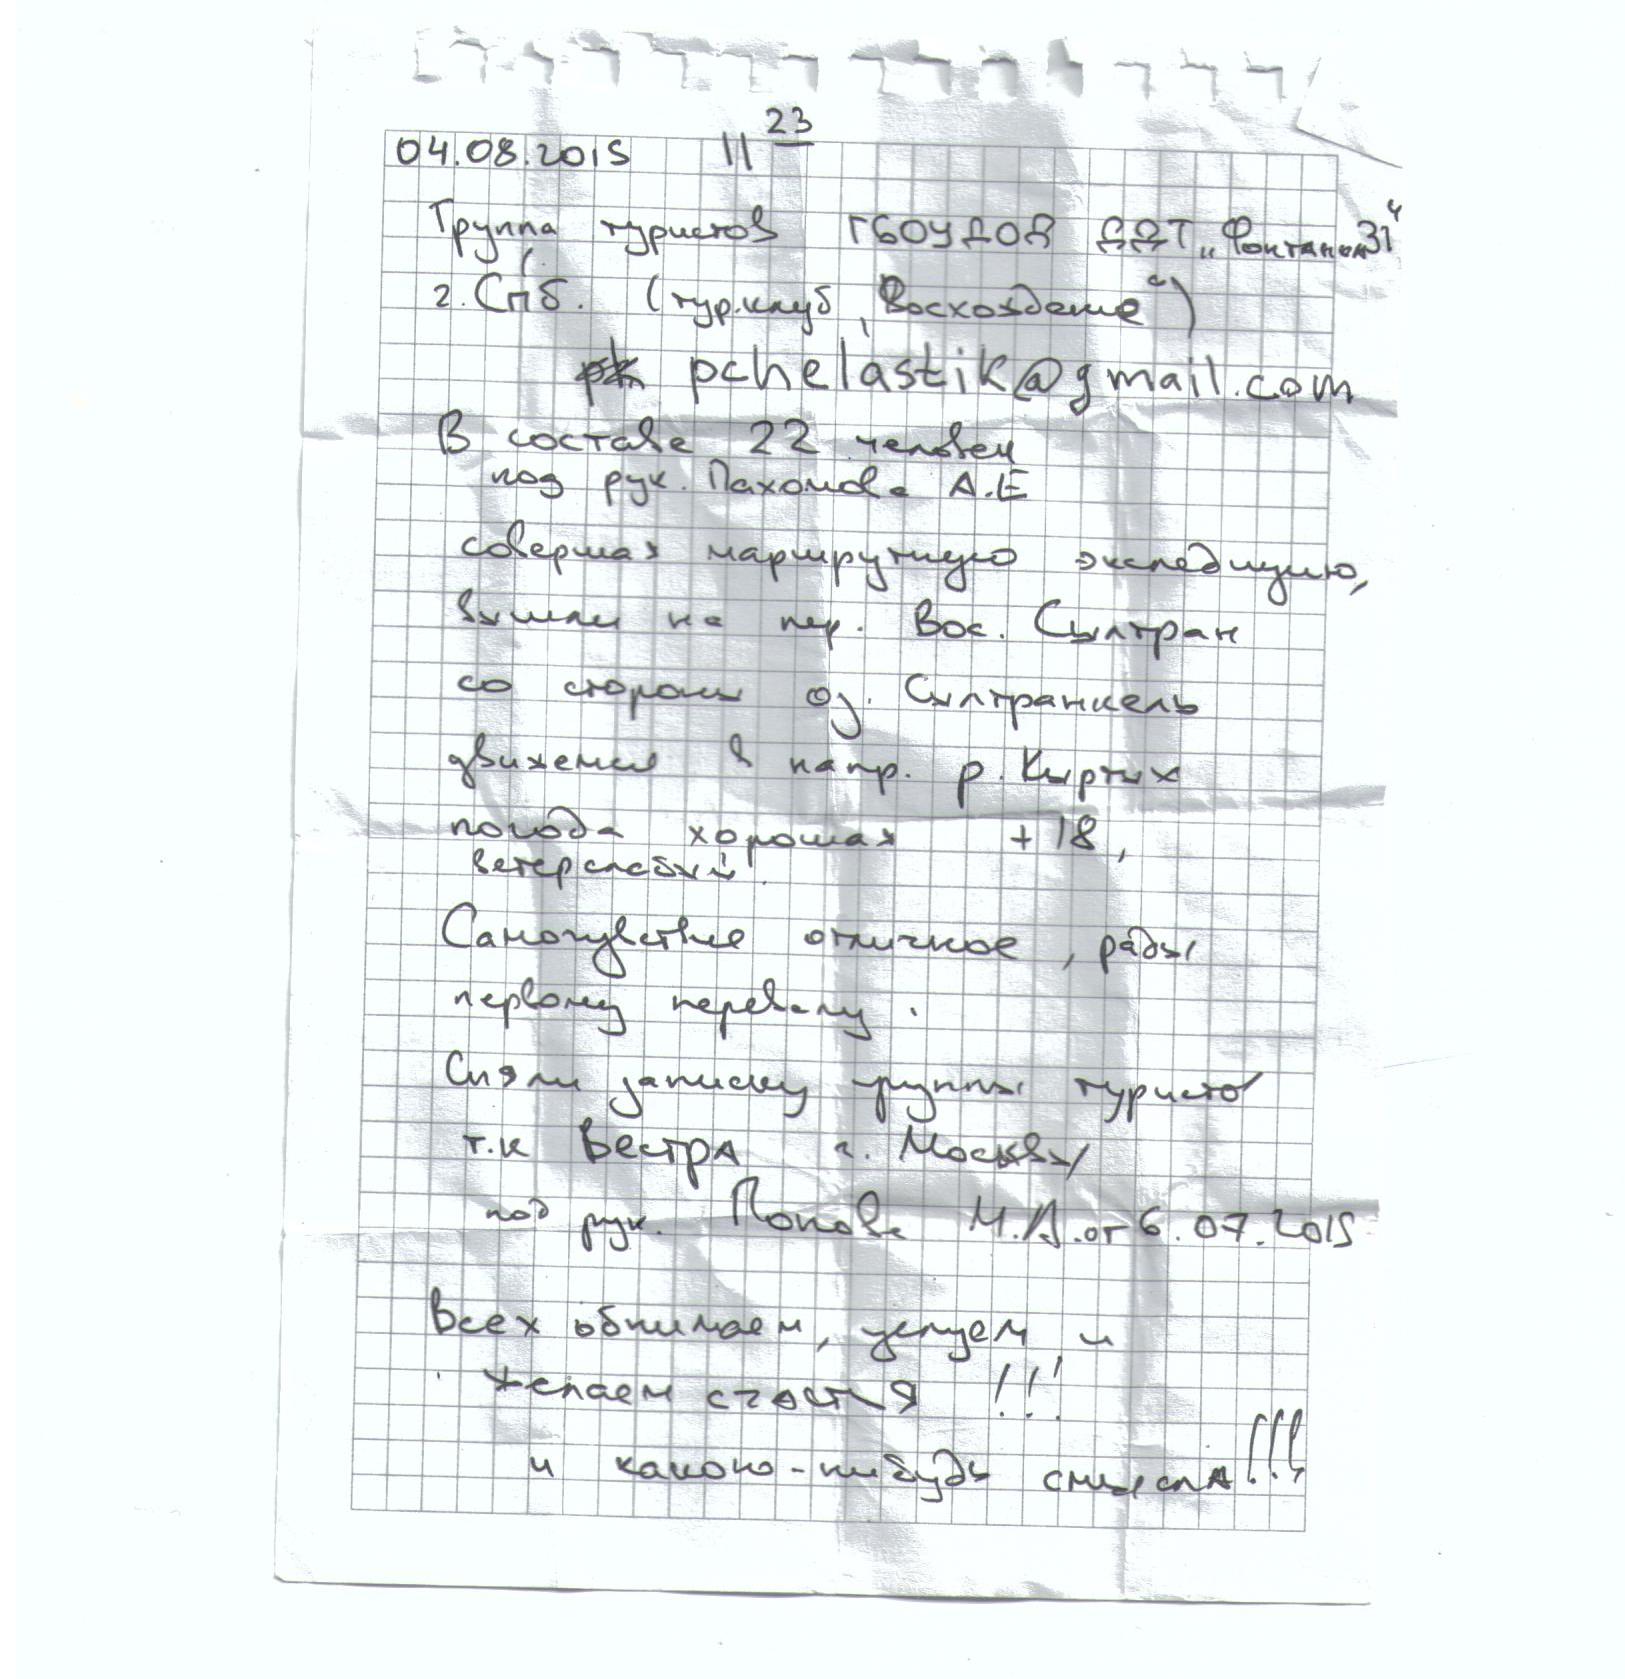 04.08.2015 11 23
Группа туристов ГБОУДОД ДДТ „Фонтанка 31"
г. Спб. (тур.клуб „Восхождение")
pchelastik@gmail.com
В составе 22 человек
под рук. Пахомова А.Е
совершая маршрутную экспедицию,
вышли на пер. Вос. Сылтран
со стороны оз. Сылтранкель
движемся в напр. р. Кыртык
погода хорошая +18,
ветер слабый.
Самочувствие отличное, рады
первому перевалу.
Сняли записку группы туристов
т.к Вестра г. Москвы
под рук. Попова М.А. от 6.07.2015
Всех обнимаем, целуем и
желаем счастья !!!
и какого-нибудь смысла!!!